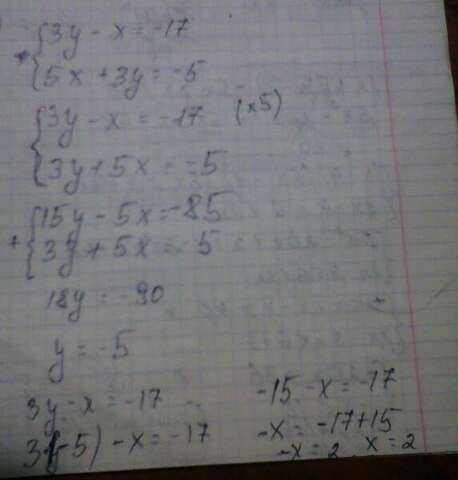 3y - x = -17
5x + 3y = -5
3y - x = -17 (x5)
3y + 5x = -5
15y - 5x = -85
+ 3y + 5x = -5
18y = -90
y = -5
3y - x = -17
3(-5) - x = -17
-15 - x = -17
-x = -17+15
-x = 2 x = 2